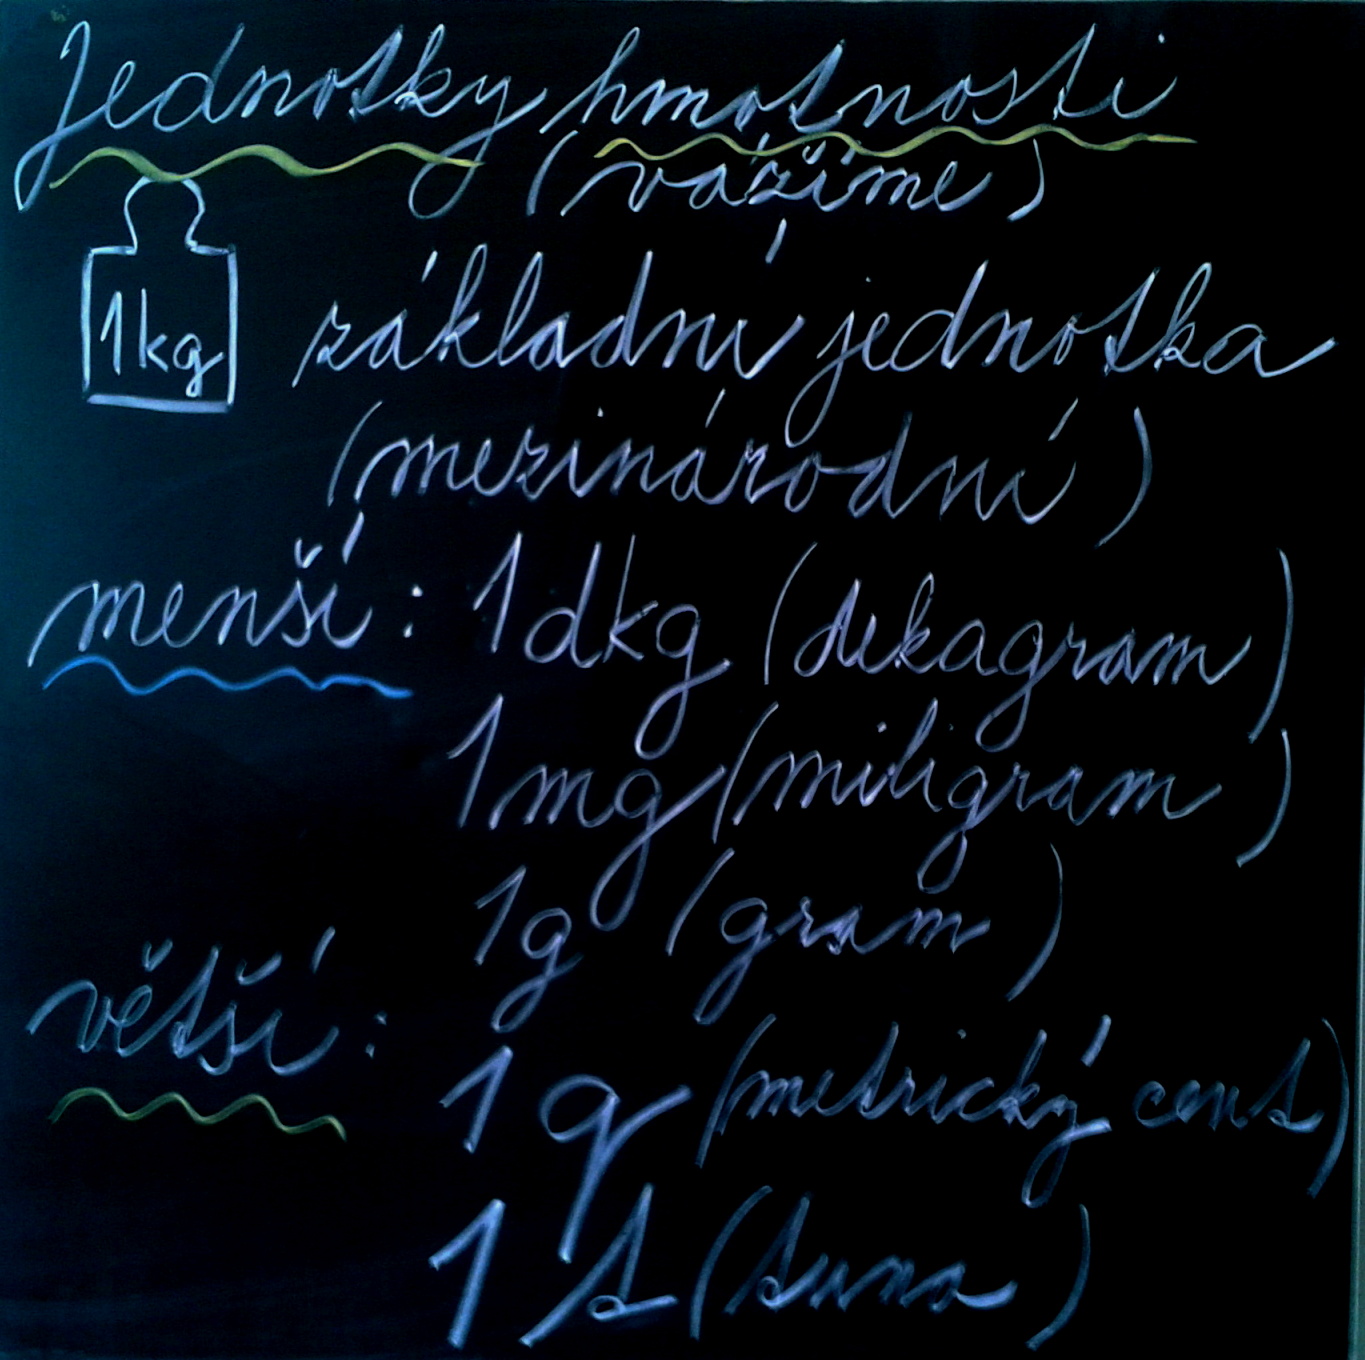 Jednotky hmotnosti
(vážíme)
1kg základní jednotka
(mezinárodní)
menší: 1dkg (dekagram)
1mg (miligram)
1g (gram)
větší:
1q (metrický cent)
1t (tuna)